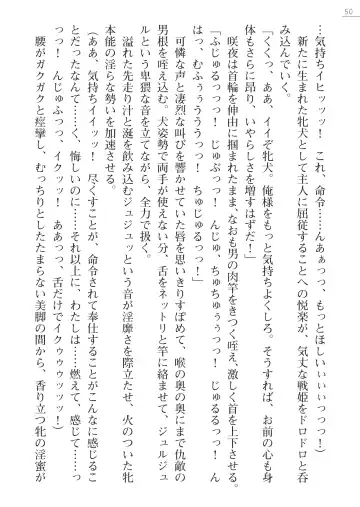 …気持ちイヒッッッ！　これ、命令……んあぁっっ、もっとほしいぃぃぃっっっ！）
　新たに生まれた牝犬として主人に屈従することへの悦楽が、気丈な戦姫をドロドロと呑
み込んでいく。
「くくっ、ああ、イイぞ牝犬。俺様をもっと気持ちよくしろ。そうすれば、お前の心も
体もさらに昂り、いやらしさを増すはずだ！」
　咲夜は首輪を伸由に掴まれたまま、なおも男の肉竿をきつく咥え、激しく首を上下させる。
「ふじゅるっっっ！　じゅぷっっ！　んじゅるっ、ちゅちゅぅっっっ！　じゅるるっっ！　ん
ぶっ、むふぅぅうううっっ！　ちゅじゅるっっ！」
　可憐な声と凄烈な叫びを響かせていた唇を思いきりすぼめて、喉の奥の奥にまで仇敵の
男根を咥え込む。犬姿勢で両手が使えない分、舌をネットリと竿に絡ませて、ジュルジュ
ルという卑猥な音を立てながら、全力で扱く。
　溢れた先走り汁と涎を飲み込むジュジュッという音が淫靡さを際立たせ、火のついた牝
本能の淫らな勢いを加速させる。
（ああ、気持ちイイッッ！　尽くすことが、命令されて奉仕することがこんなに感じるこ
とだったなんて……くっ、悔しいのに……それ以上に、わたしは……燃えて、感じて……っ
っ！　んじゅふっっ、イクぅっっ！　ああっっ、舌だけでイクゥゥゥッッッ！）
　腰がガクガクと痙攣し、むっちりとしたたまらない美脚の間から、香り立つ牝の淫蜜が
50